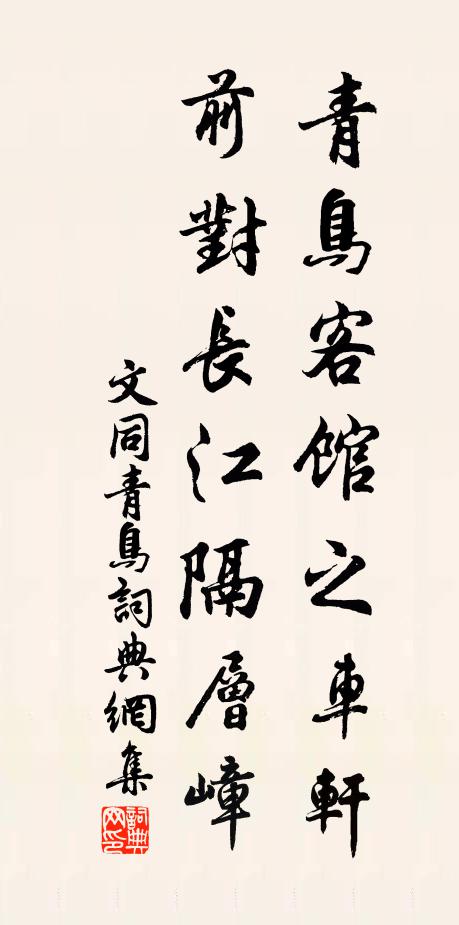 青鳥客館之車軒
前對長江隔層嶂
文同青鳥詞典網集
詞典
网印